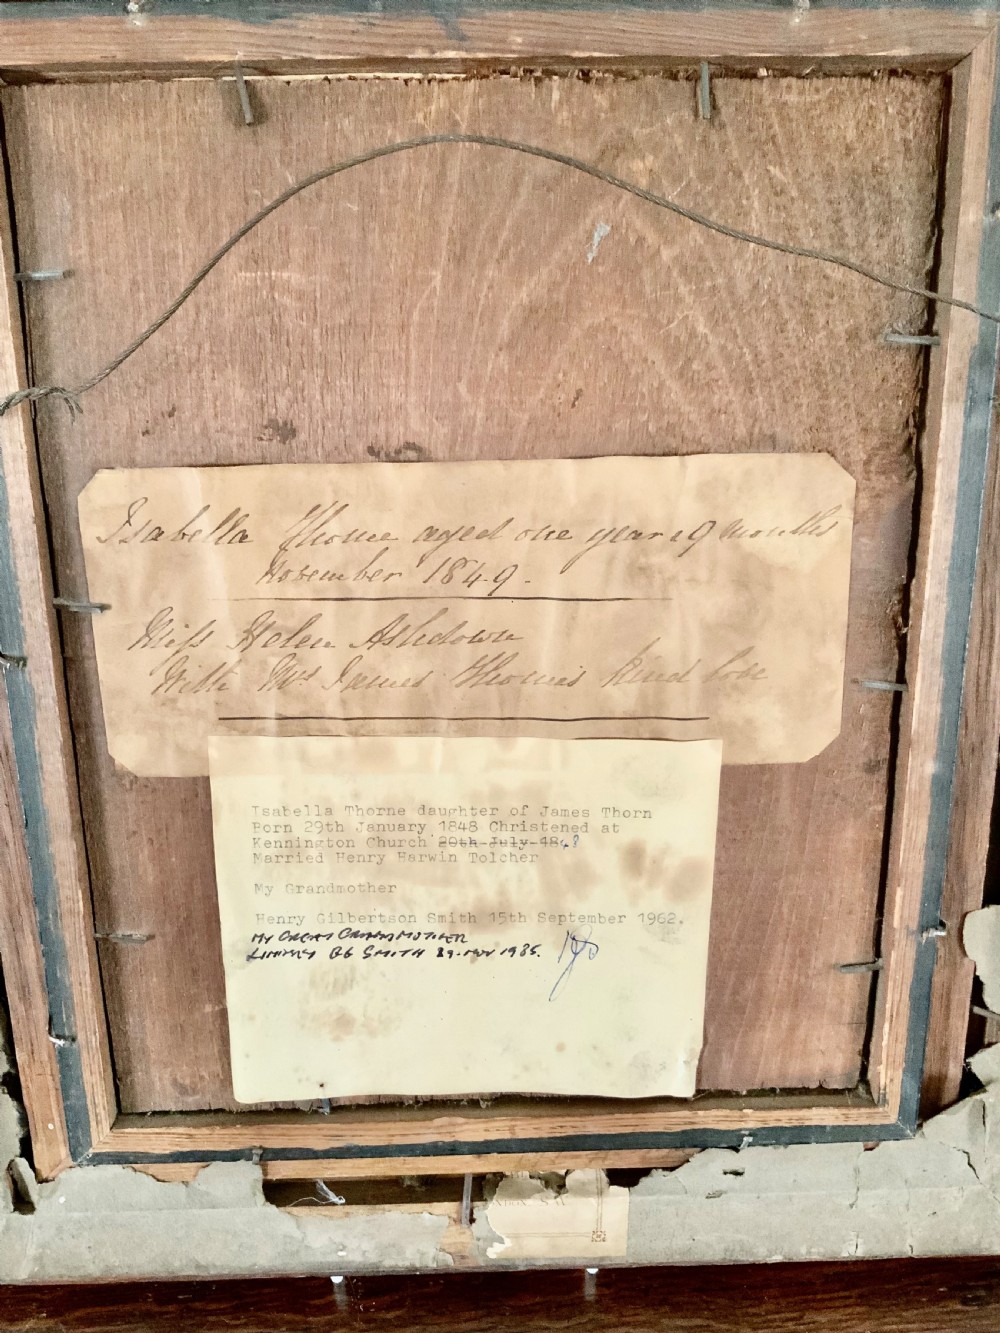 Isabella Thorne aged one year & 9 months
November 1849.
Miss Helen Ashdown
With Mrs James Thorne's kind love
Isabella Thorne daughter of James Thorn
Born 29th January 1848 Christened at
Kennington Church 20th July 1848
Married Henry Harwin Tolcher
My Grandmother
Henry Gilbertson Smith 15th September 1962.
MY GREAT GRANDMOTHER
SMITH 1985.